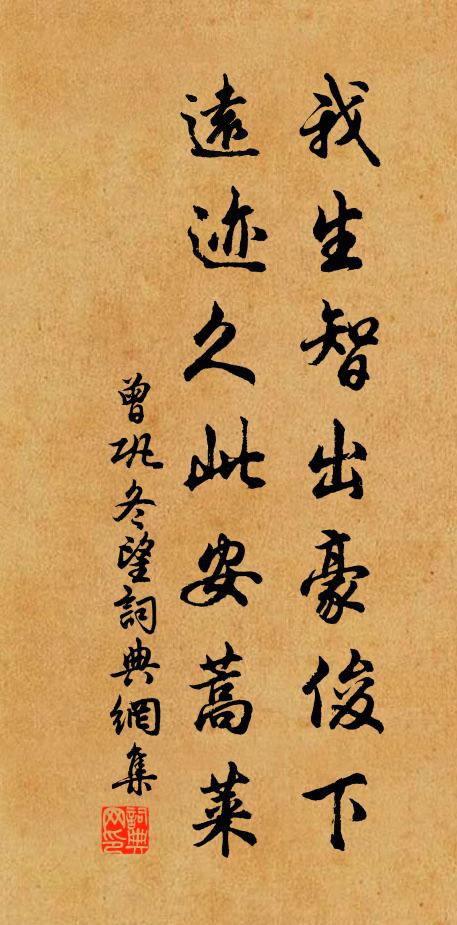 我生智出豪俊下
遠迹久此安蒿萊
曾巩冬望詞典網集
詞典网印